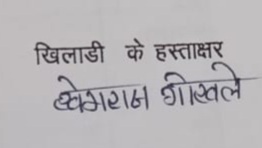 खिलाडी के हस्ताक्षर
खेमराज गोखले